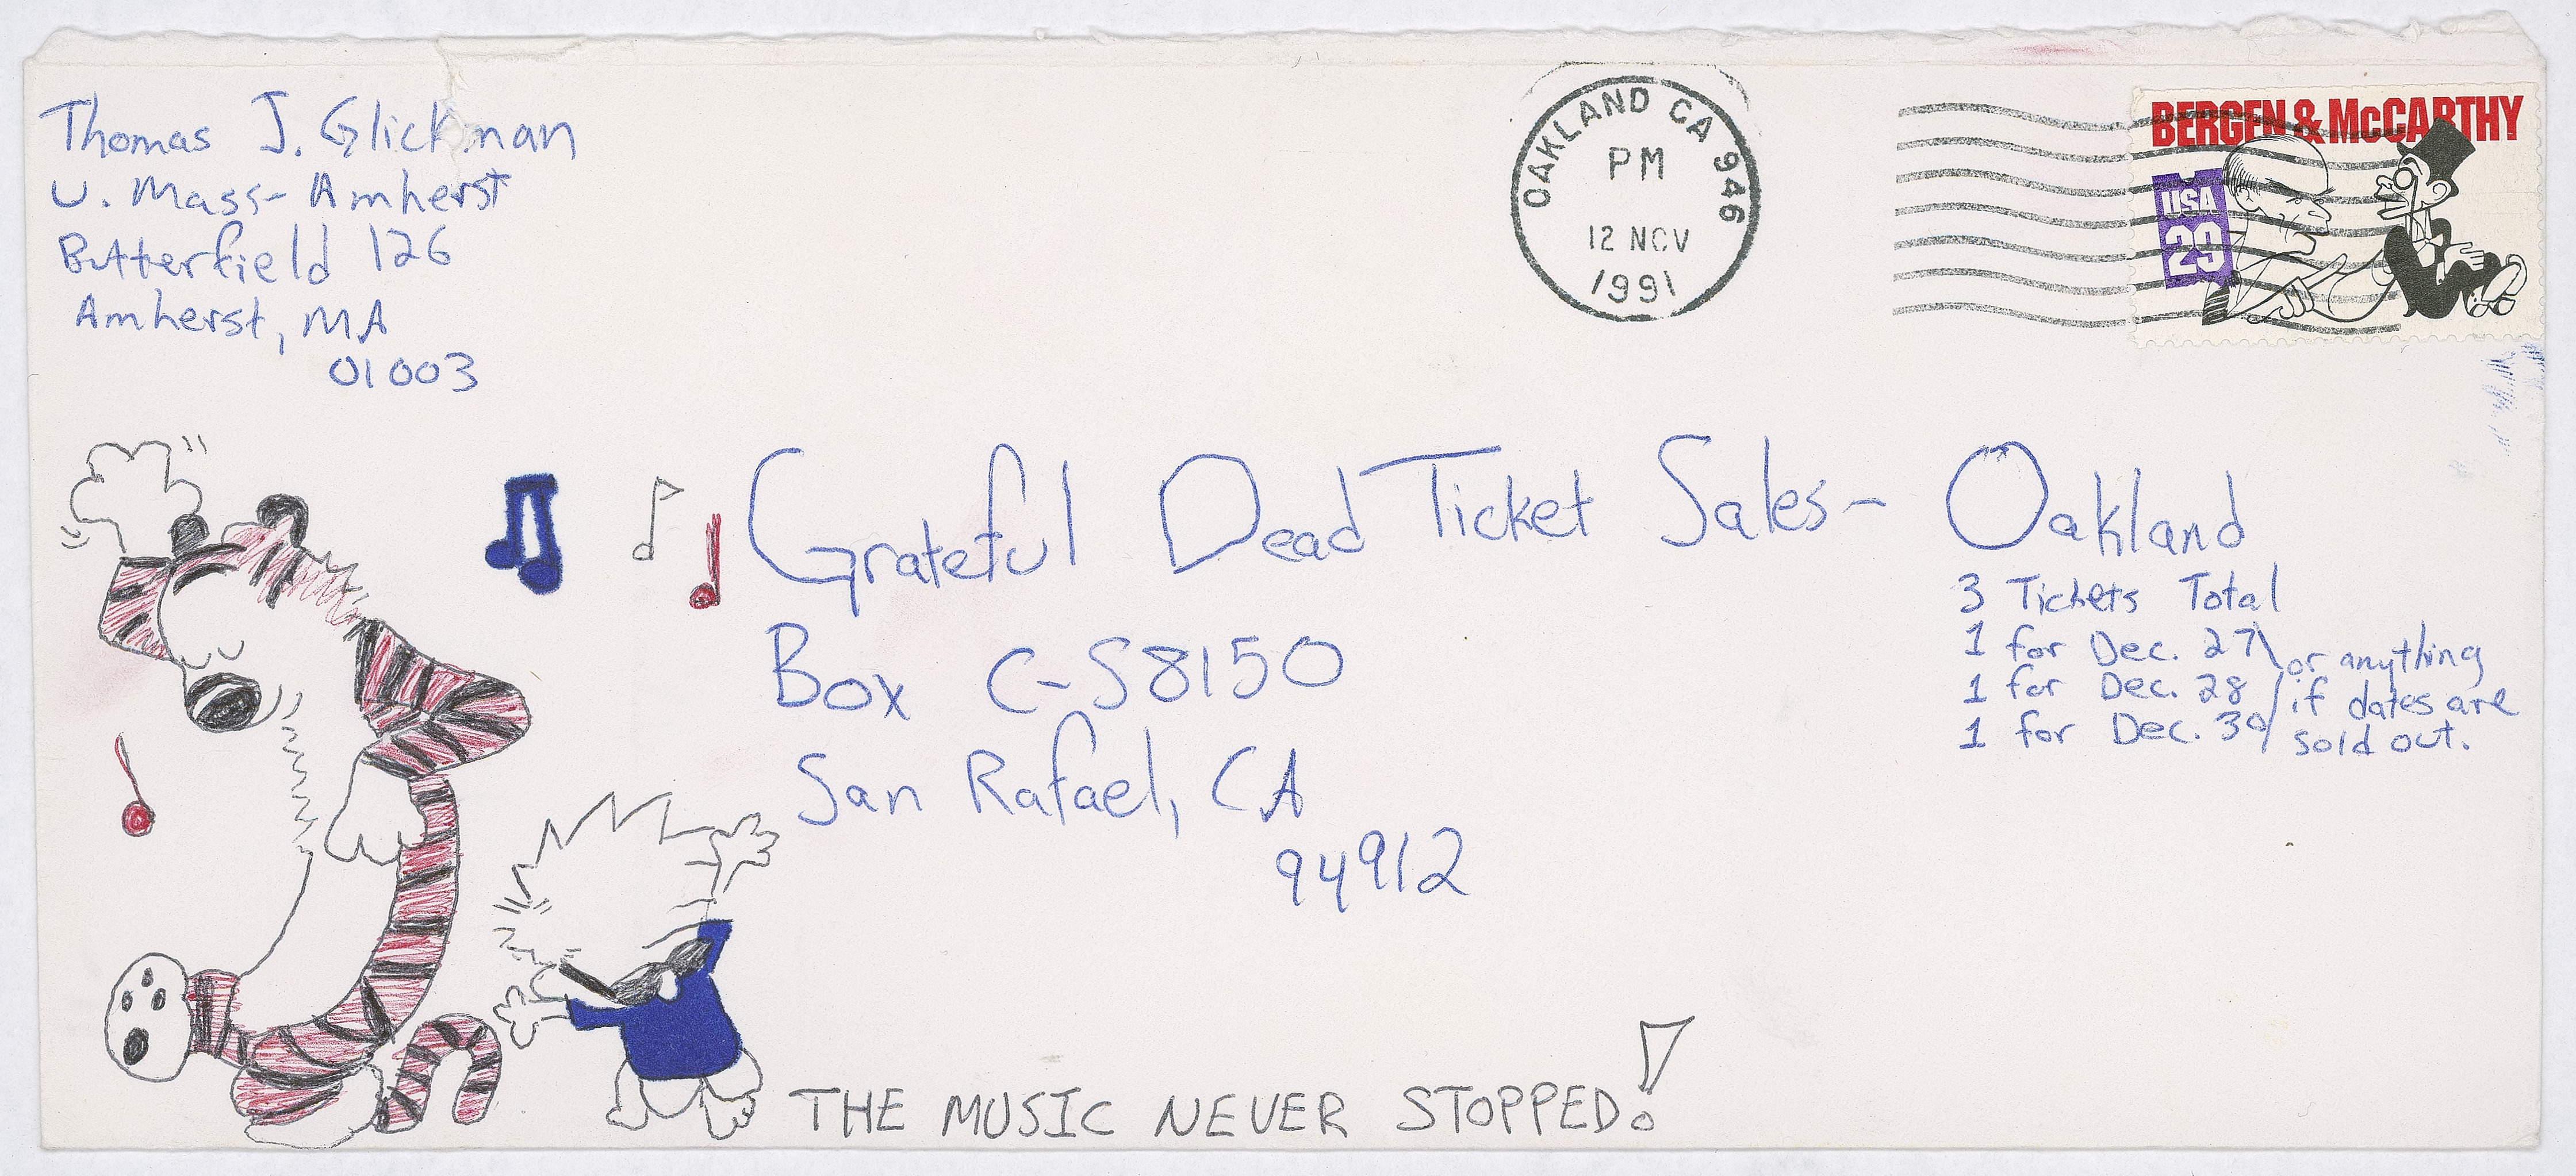 Thomas J. Glickman
U. Mass- Amherst
Butterfield 126
Amherst, MA
01003
OAKLAND CA 946
PM
12 NOV
1991
BERGEN & McCARTHY
USA
29
Grateful Dead Ticket Sales- Oakland
Box C-S8150
San Rafael, CA
94912
3 Tickets Total
1 for Dec. 27
1 for Dec. 28
1 for Dec. 30
or anything
if dates are
sold out.
THE MUSIC NEVER STOPPED!